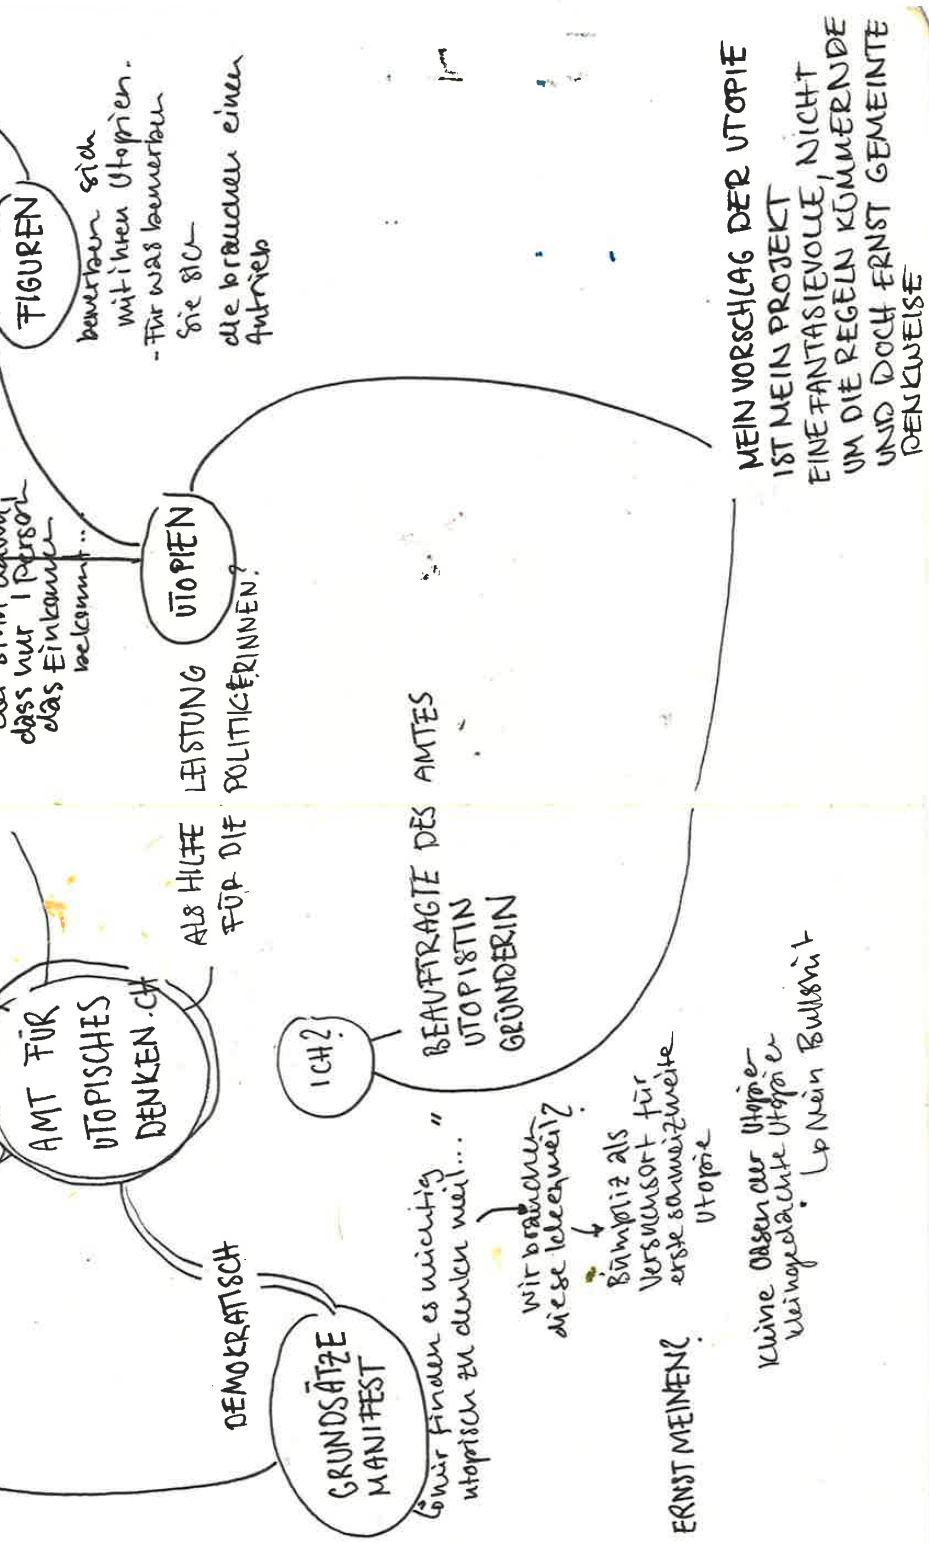 AMT FÜR
UTOPISCHES
DENKEN.CH
ALS HILFE LEISTUNG
FÜR DIE POLITIKERINNEN?
DEMOKRATISCH
GRUNDSÄTZE
MANIFEST
wir finden es wichtig
utopisch zu denken weil... "
Wir brauchen
diese Ideen weil?
Bümpliz als
Versuchsort für
erste schweizweite
Utopie
ERNST MEINEN?
Kleine Oasen der Utopie
kleingedachte Utopie
↳ Nein Bullshit
ICH?
BEAUFTRAGTE DES AMTES
UTOPISTIN
GRÜNDERIN
dass nur 1 Person
das Einkommen
bekommt...
UTOPIEN
FIGUREN
bewerben sich
mit ihren Utopien.
- Für was bewerben
sie sich
die brauchen einen
Antrieb
MEIN VORSCHLAG DER UTOPIE
IST MEIN PROJEKT
EINE FANTASIEVOLLE, NICHT
UM DIE REGELN KÜMMERNDE
UND DOCH ERNST GEMEINTE
DENKWEISE